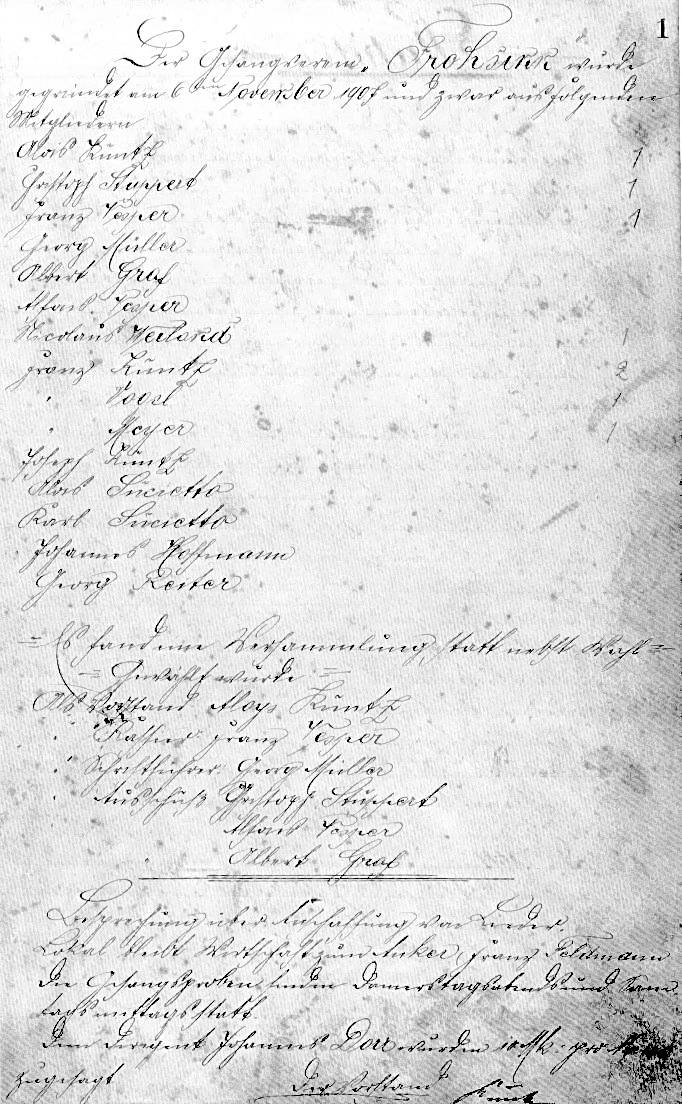 1
Der Gesangverein „Frohsinn" wurde
gegründet am 6ten November 1907 und zwar aus folgenden
Mitgliedern
Alois Küntz 1
Christoph Stuppert 1
Franz Vesper 1
Georg Müller
Albert Graf
Alfons Vesper
Nicolaus Weiland 1
Franz Küntz 2
" Vogel 1
" Meyer 1
Joseph Küntz
Alois Lucietto
Karl Lucietto
Johannes Hoffmann
Georg Reiter
= Es fand eine Versammlung statt nebst Wahl =
= Gewählt wurde =
Als Vorstand Aloys Küntz
" Kassier Franz Vesper
" Schriftführer Georg Müller
" Ausschuß Christoph Stuppert
Alfons Vesper
Albert Graf
Besprechung über Anschaffung von Lieder.
Lokal bleibt Wirtschaft zum Anker, Franz Feldmann
Die Gesangsproben finden Donnerstagsabends und Sonn
tags mittags statt.
Dem Dirigent Johannes Dorr wurden 10 Mk. pro
zugesagt
Der Vorstand